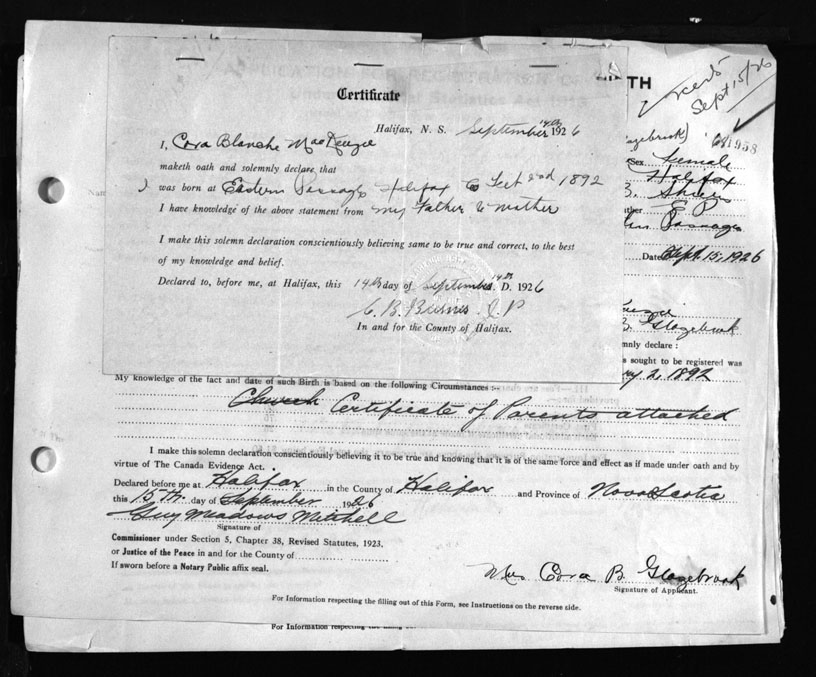 Certificate
Halifax, N. S. September 14th 1926
I, Cora Blanche MacKenzie
maketh oath and solemnly declare that
I was born at Eastern Passage Halifax Co 2nd 1892
I have knowledge of the above statement from my Father & Mother
I make this solemn declaration conscientiously believing same to be true and correct, to the best
of my knowledge and belief.
Declared to, before me, at Halifax, this 14th day of September 14th. D. 1926
C. B. Burns J P
In and for the County of Halifax.
TH
Sept 15/26
azebrook)
Sex Female
Halifax
B.
E P
Passage
Date Sept. 15, 1926
B. Glazebrook
mnly declare :
s sought to be registered was
ry 2, 1892
My knowledge of the fact and date of such Birth is based on the following Circumstances :-
Church Certificate of Parents attached
I make this solemn declaration conscientiously believing it to be true and knowing that it is of the same force and effect as if made under oath and by
virtue of The Canada Evidence Act.
Declared before me at Halifax in the County of Halifax and Province of Nova Scotia
this 15th day of September 1926
Guy Meadows Mitchell
Signature of
Commissioner under Section 5, Chapter 38, Revised Statutes, 1923.
or Justice of the Peace in and for the County of
If sworn before a Notary Public affix seal.
Mrs Cora B Glazebrook
Signature of Applicant.
For Information respecting the filling out of this Form, see Instructions on the reverse side.
For Information respecting the filling out